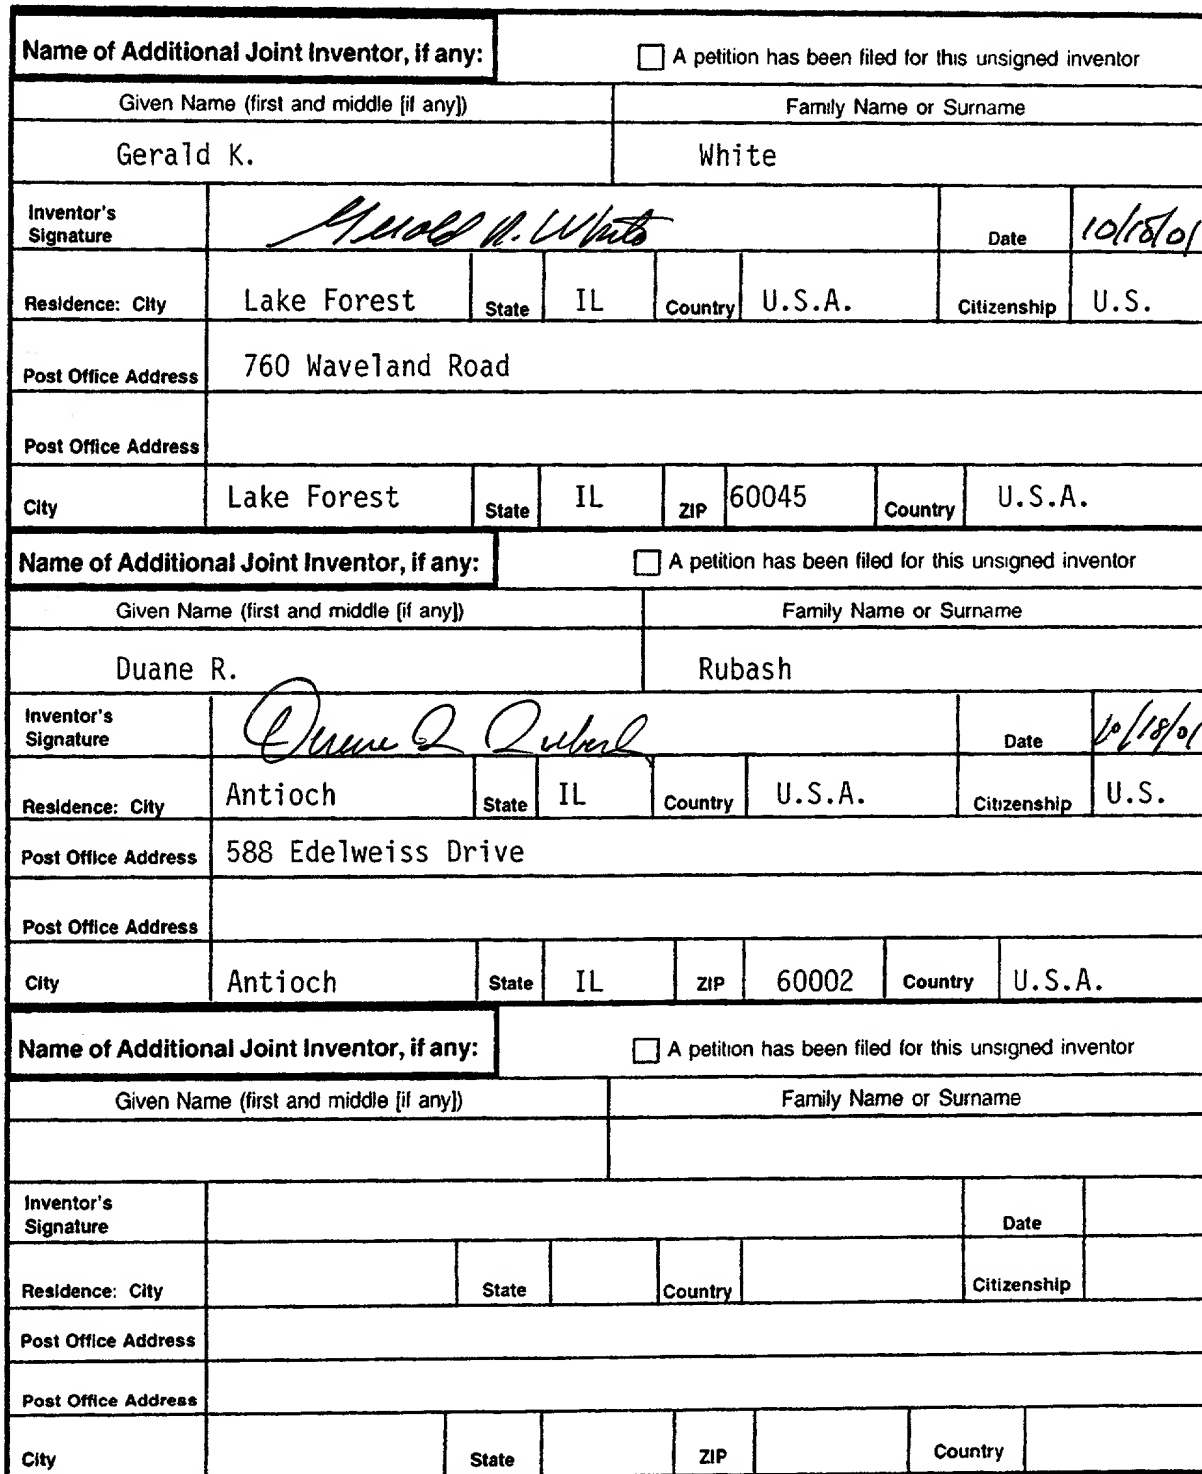 Name of Additional Joint Inventor, if any: A petition has been filed for this unsigned inventor
Given Name (first and middle [if any]) Family Name or Surname
Gerald K. White
Inventor's
Signature Gerald K. White Date 10/18/01
Residence: City Lake Forest State IL Country U.S.A. Citizenship U.S.
Post Office Address 760 Waveland Road
Post Office Address
City Lake Forest State IL ZIP 60045 Country U.S.A.
Name of Additional Joint Inventor, if any: A petition has been filed for this unsigned inventor
Given Name (first and middle [if any]) Family Name or Surname
Duane R. Rubash
Inventor's
Signature Duane R Rubash Date 10/18/01
Residence: City Antioch State IL Country U.S.A. Citizenship U.S.
Post Office Address 588 Edelweiss Drive
Post Office Address
City Antioch State IL ZIP 60002 Country U.S.A.
Name of Additional Joint Inventor, if any: A petition has been filed for this unsigned inventor
Given Name (first and middle [if any]) Family Name or Surname
Inventor's
Signature Date
Residence: City State Country Citizenship
Post Office Address
Post Office Address
City State ZIP Country